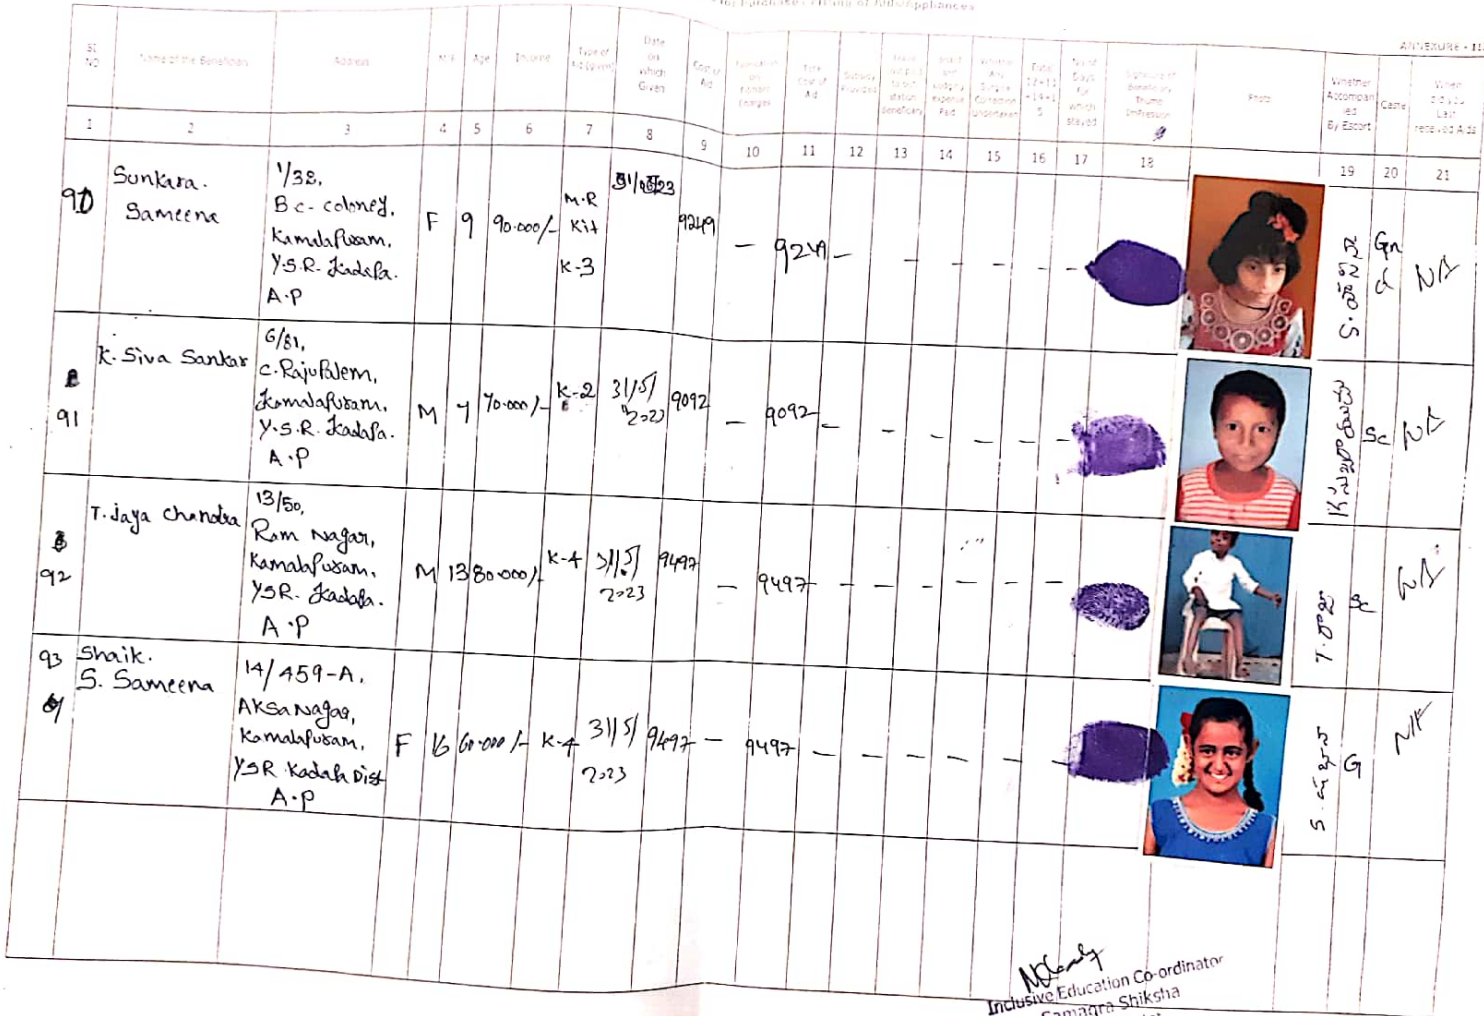 ANNEXURE - III
Sl. NO
Name of the Beneficiary
Address
M/F
Age
Income
Type of Aid (given)
Date on which Given
Cost of Aid
Total Cost of Aid
Subsidy Provided
No of Days for which stayed
Signature of Beneficiary Thumb Impression
Photo
Whether Accompanied By Escort
Caste
1 2 3 4 5 6 7 8 9 10 11 12 13 14 15 16 17 18 19 20 21
Sunkara.
Sameena
1/38,
B.c- coloney,
Kamalapuram,
Y.S.R. Kadapa.
A.P
F 9 90.000/-
M.R
Kit
K-3
9249 - 9249 - - - - - -
NA
91
K. Siva Sankar
6/81,
C. Rajupalem,
Kamalapuram,
Y.S.R. Kadapa.
A.P
M 7 70.000/- K-2
31/5/
2023
9092 - 9092 - - - - - -
Sc NA
92
T. Jaya Chandra
13/50,
Ram Nagar,
Kamalapuram,
YSR. Kadapa.
A.P
M 13 80.000/- K-4
31/5/
2023
9497 - 9497 - - - - - -
T. రాజు
Sc NA
93
Shaik.
S. Sameena
14/459-A,
AKsa Nagar,
Kamalapuram,
YSR Kadapa Dist
A.P
F 16 60.000/- K-4
31/5/
2023
9497 - 9497 - - - - - -
G NA
Inclusive Education Co-ordinator
Samagra Shiksha